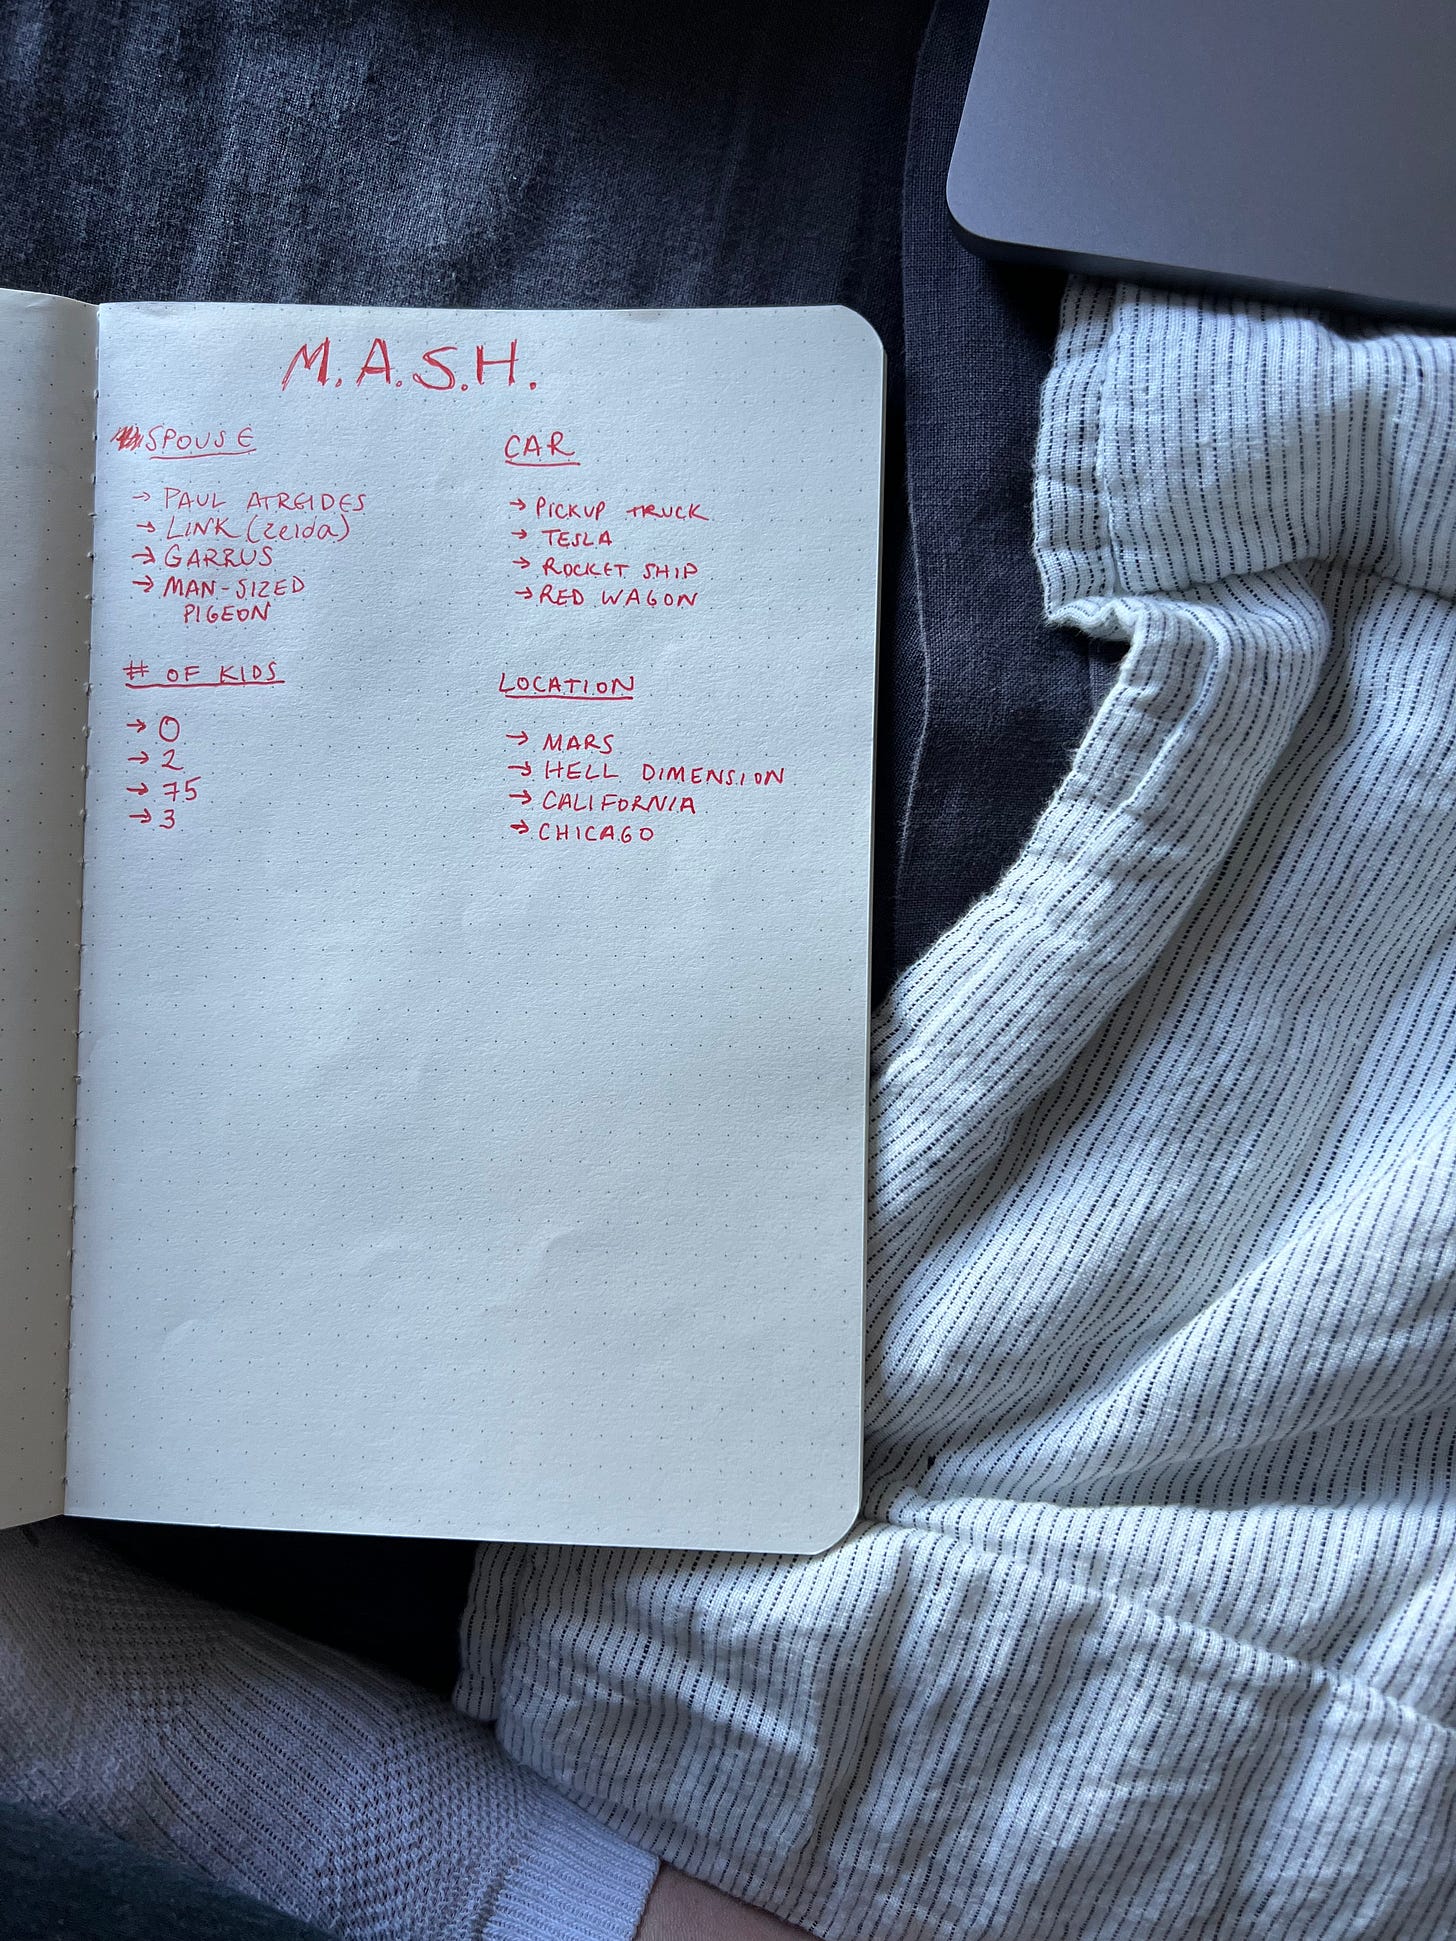 M.A.S.H.
SPOUSE
→ PAUL ATREIDES
→ LINK (Zelda)
→ GARRUS
→ MAN-SIZED
PIGEON
CAR
→ PICKUP TRUCK
→ TESLA
→ ROCKET SHIP
→ RED WAGON
# OF KIDS
→ 0
→ 2
→ 75
→ 3
LOCATION
→ MARS
→ HELL DIMENSION
→ CALIFORNIA
→ CHICAGO